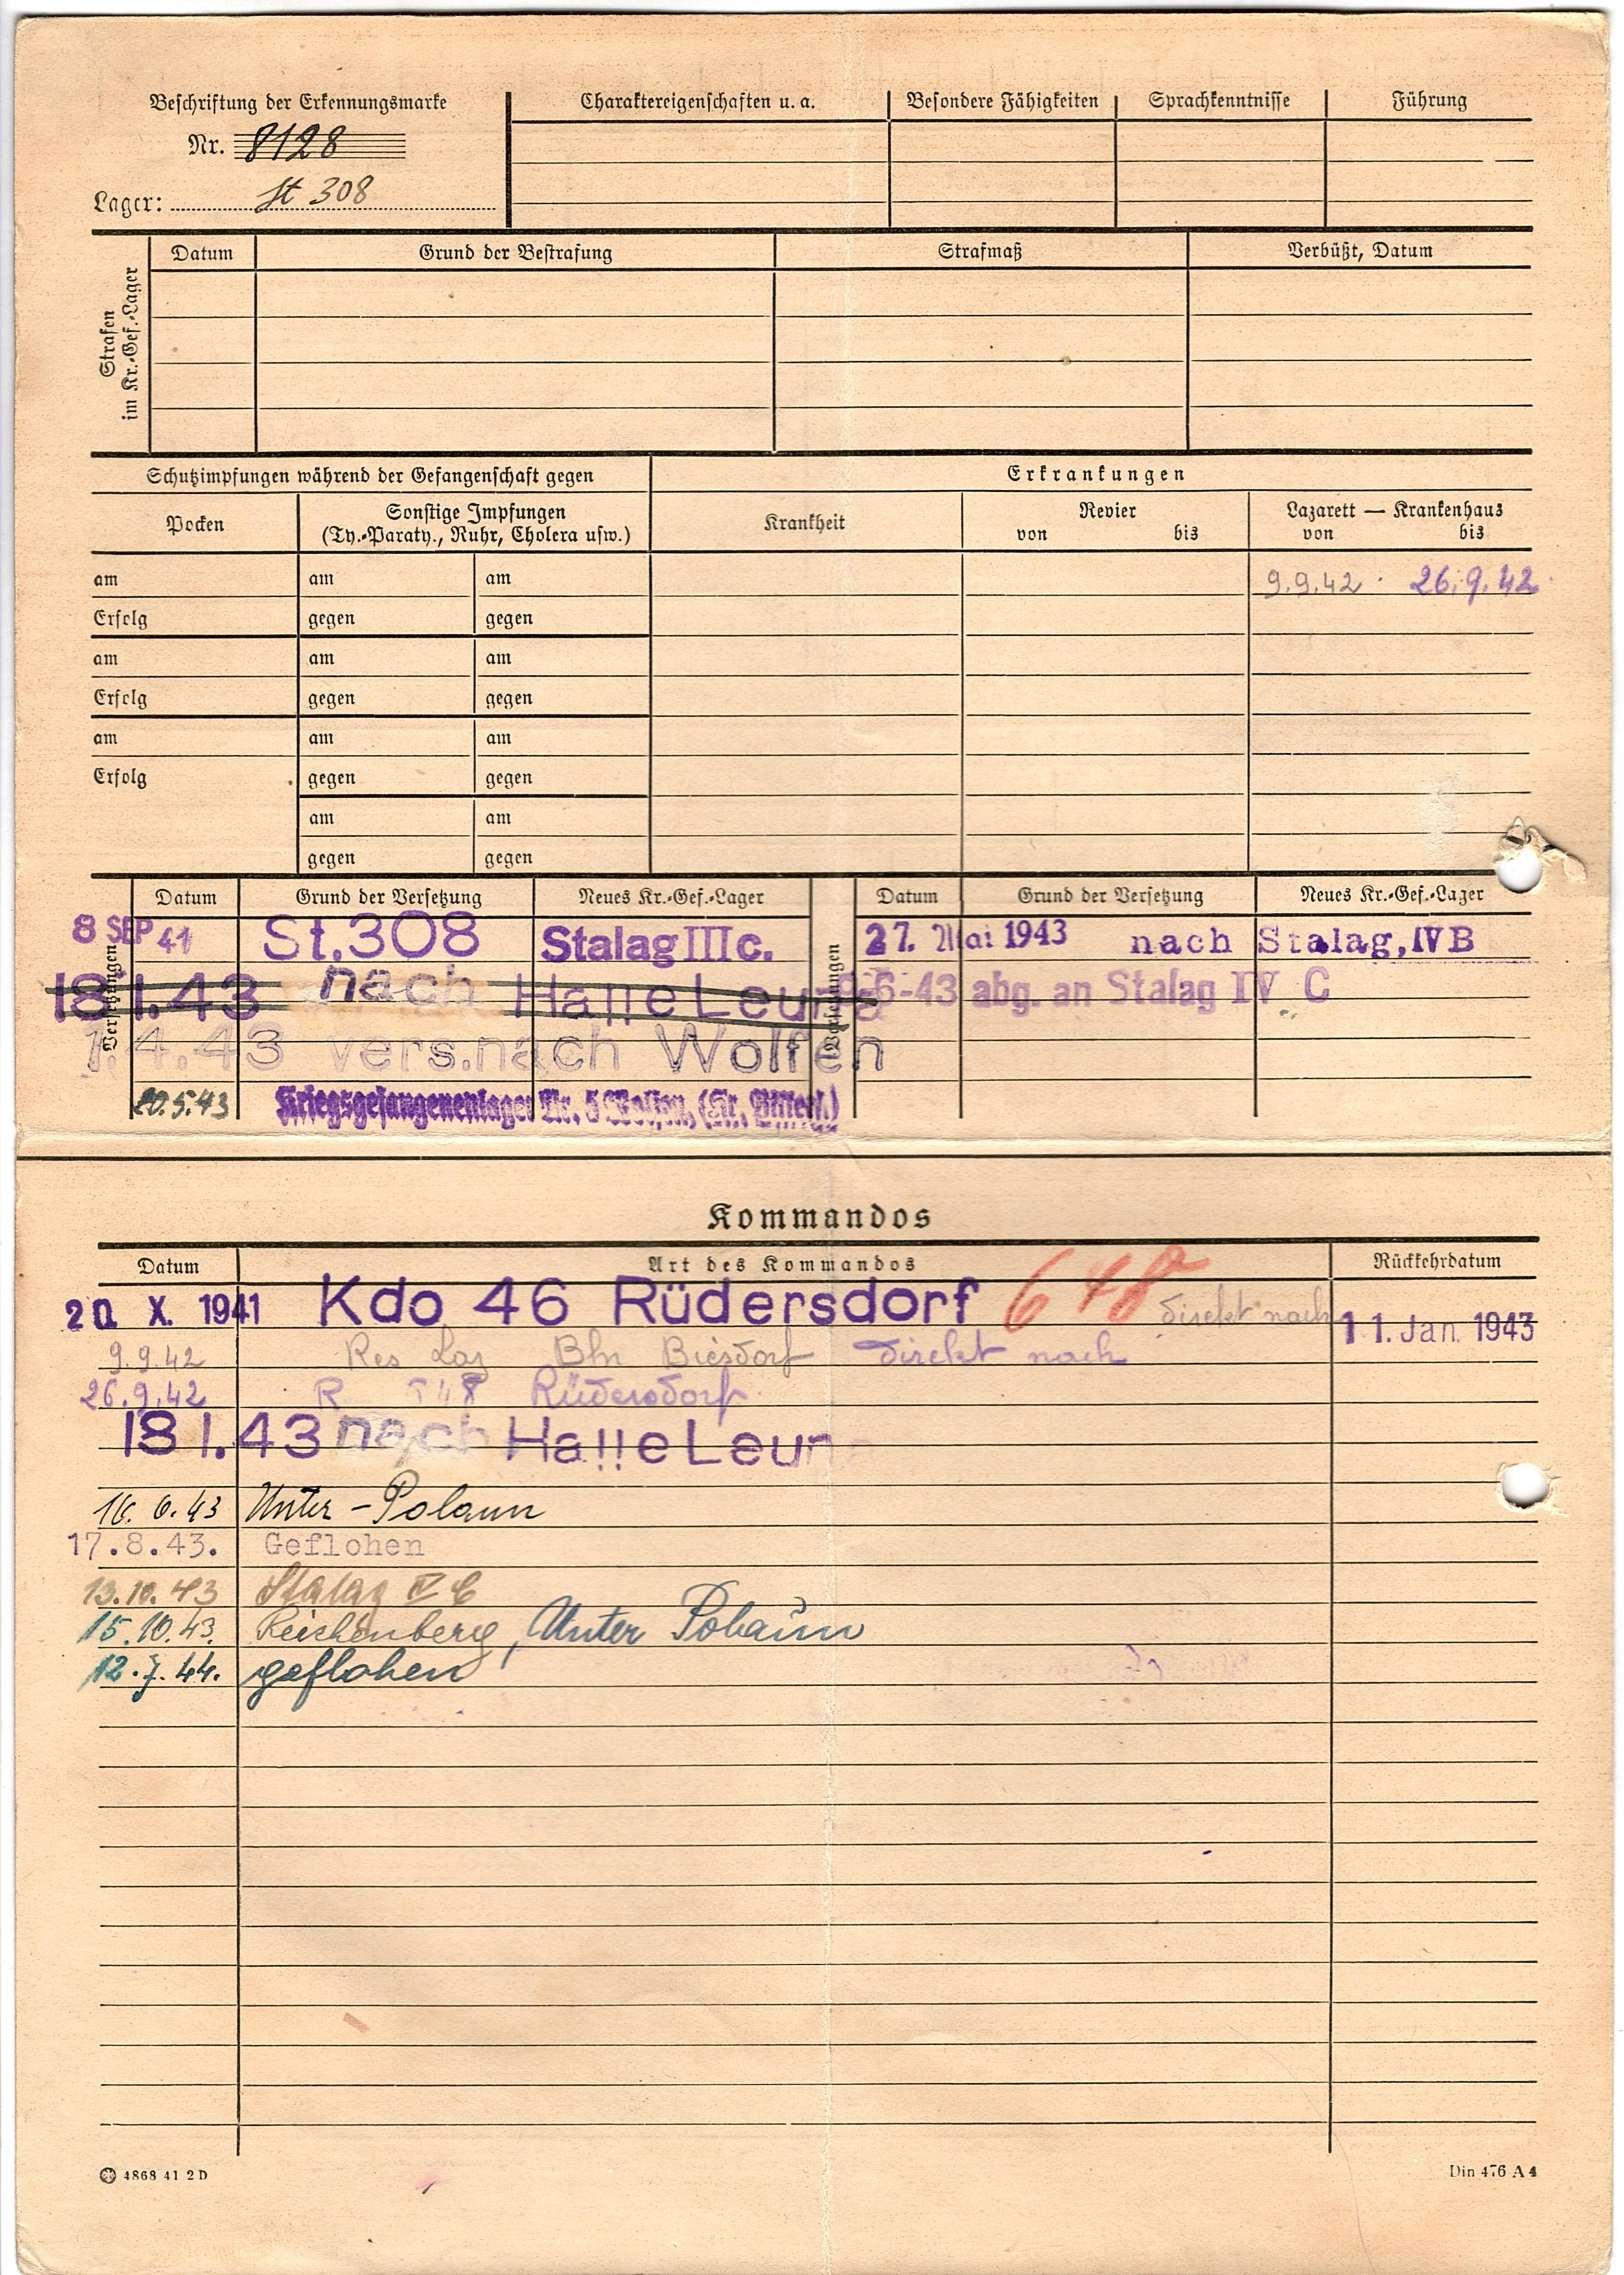 Beschriftung der Erkennungsmarke
Nr. 8128
Lager: St 308
Charaktereigenschaften u. a.
Besondere Fähigkeiten
Sprachkenntnisse
Führung
Strafen im Kr.-Gef.-Lager
Datum
Grund der Bestrafung
Strafmaß
Verbüßt, Datum
Schutzimpfungen während der Gefangenschaft gegen
Erkrankungen
Pocken
Sonstige Impfungen
(Ty.-Paraty., Ruhr, Cholera usw.)
Krankheit
Revier
von bis
Lazarett — Krankenhaus
von bis
am am am
9.9.42 26.9.42
Erfolg gegen gegen
am am am
Erfolg gegen gegen
am am am
Erfolg gegen gegen
am am
gegen gegen
Versetzungen
Datum Grund der Versetzung Neues Kr.-Gef.-Lager
8 SEP 41 St.308 Stalag III c.
18 1.43 nach Halle Leuna
1.4.43 vers.nach Wolfen
20.5.43 Kriegsgefangenenlager Nr. 5 Wolfen, (Kr. Bitterf.)
Versetzungen
Datum Grund der Versetzung Neues Kr.-Gef.-Lager
27. Mai 1943 nach Stalag, IV B
6-43 abg. an Stalag IV C
Kommandos
Datum Art des Kommandos Rückkehrdatum
20. X. 1941 Kdo 46 Rüdersdorf direkt nach 11. Jan. 1943
9.9.42 Res Laz Bln Biesdorf direkt nach
26.9.42 R Rüdersdorf.
18 1.43 nach Halle Leuna
16. 6. 43 Unter-Polaun
17.8.43. Geflohen
13.10.43 Stalag IV C
15.10.43. Reichenberg, Unter Polaun
12.7.44. geflohen
4868 41 2 D
Din 476 A 4